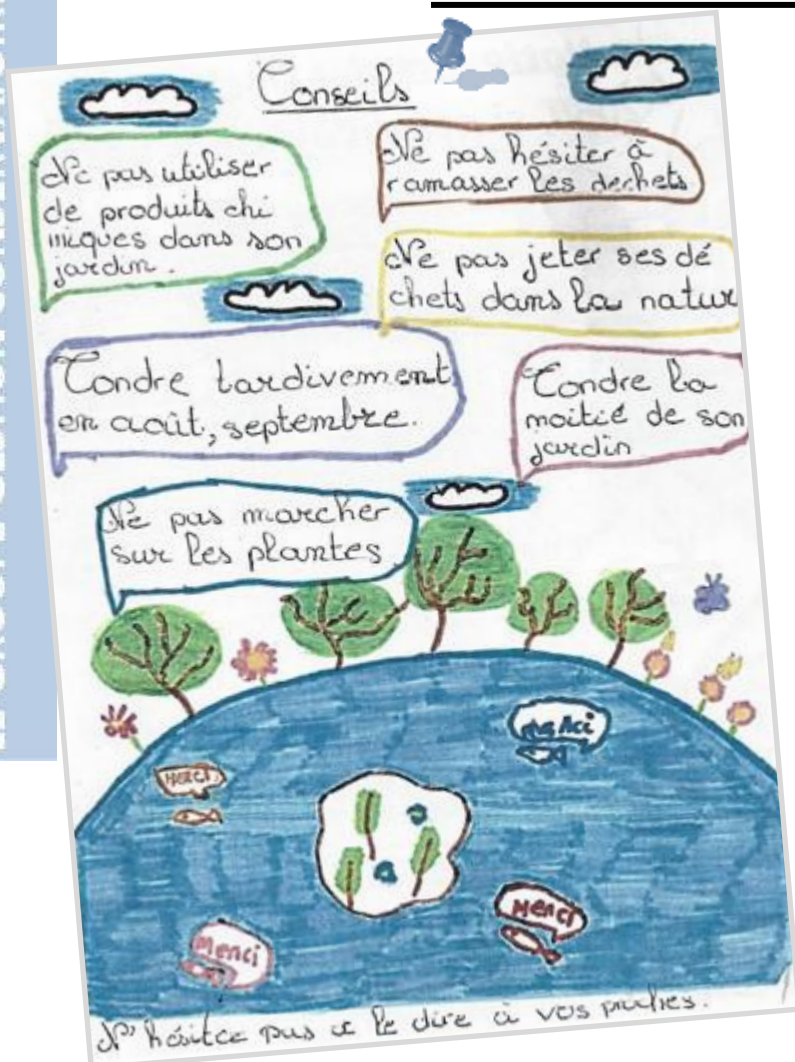 Conseils
Ne pas utiliser
de produits chi
miques dans son
jardin.
Ne pas hésiter à
ramasser les dechets
Ne pas jeter ses dé
chets dans la natur
Tondre tardivement
en août, septembre.
Tondre la
moitié de son
jardin
Ne pas marcher
sur les plantes
Merci
Merci
Merci
Merci
N'hésitez pas a le dire à vos proches.